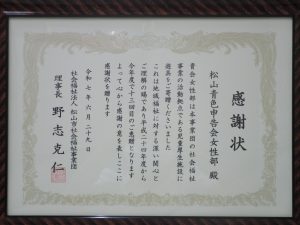 感謝状
松山青色申告会女性部 殿
貴会女性部は本事業団の社会福祉
事業の活動拠点である児童厚生施設に
遊具をご寄贈くださいました
これは地域福祉に対する深い関心と
ご理解の賜であり平成二十四年度から
今年度で十三回目のご恵贈となります
よって心から感謝の意を表しここに
感謝状を贈ります
令和七年六月二十九日
社会福祉法人 松山市社会福祉事業団
理事長 野志克仁